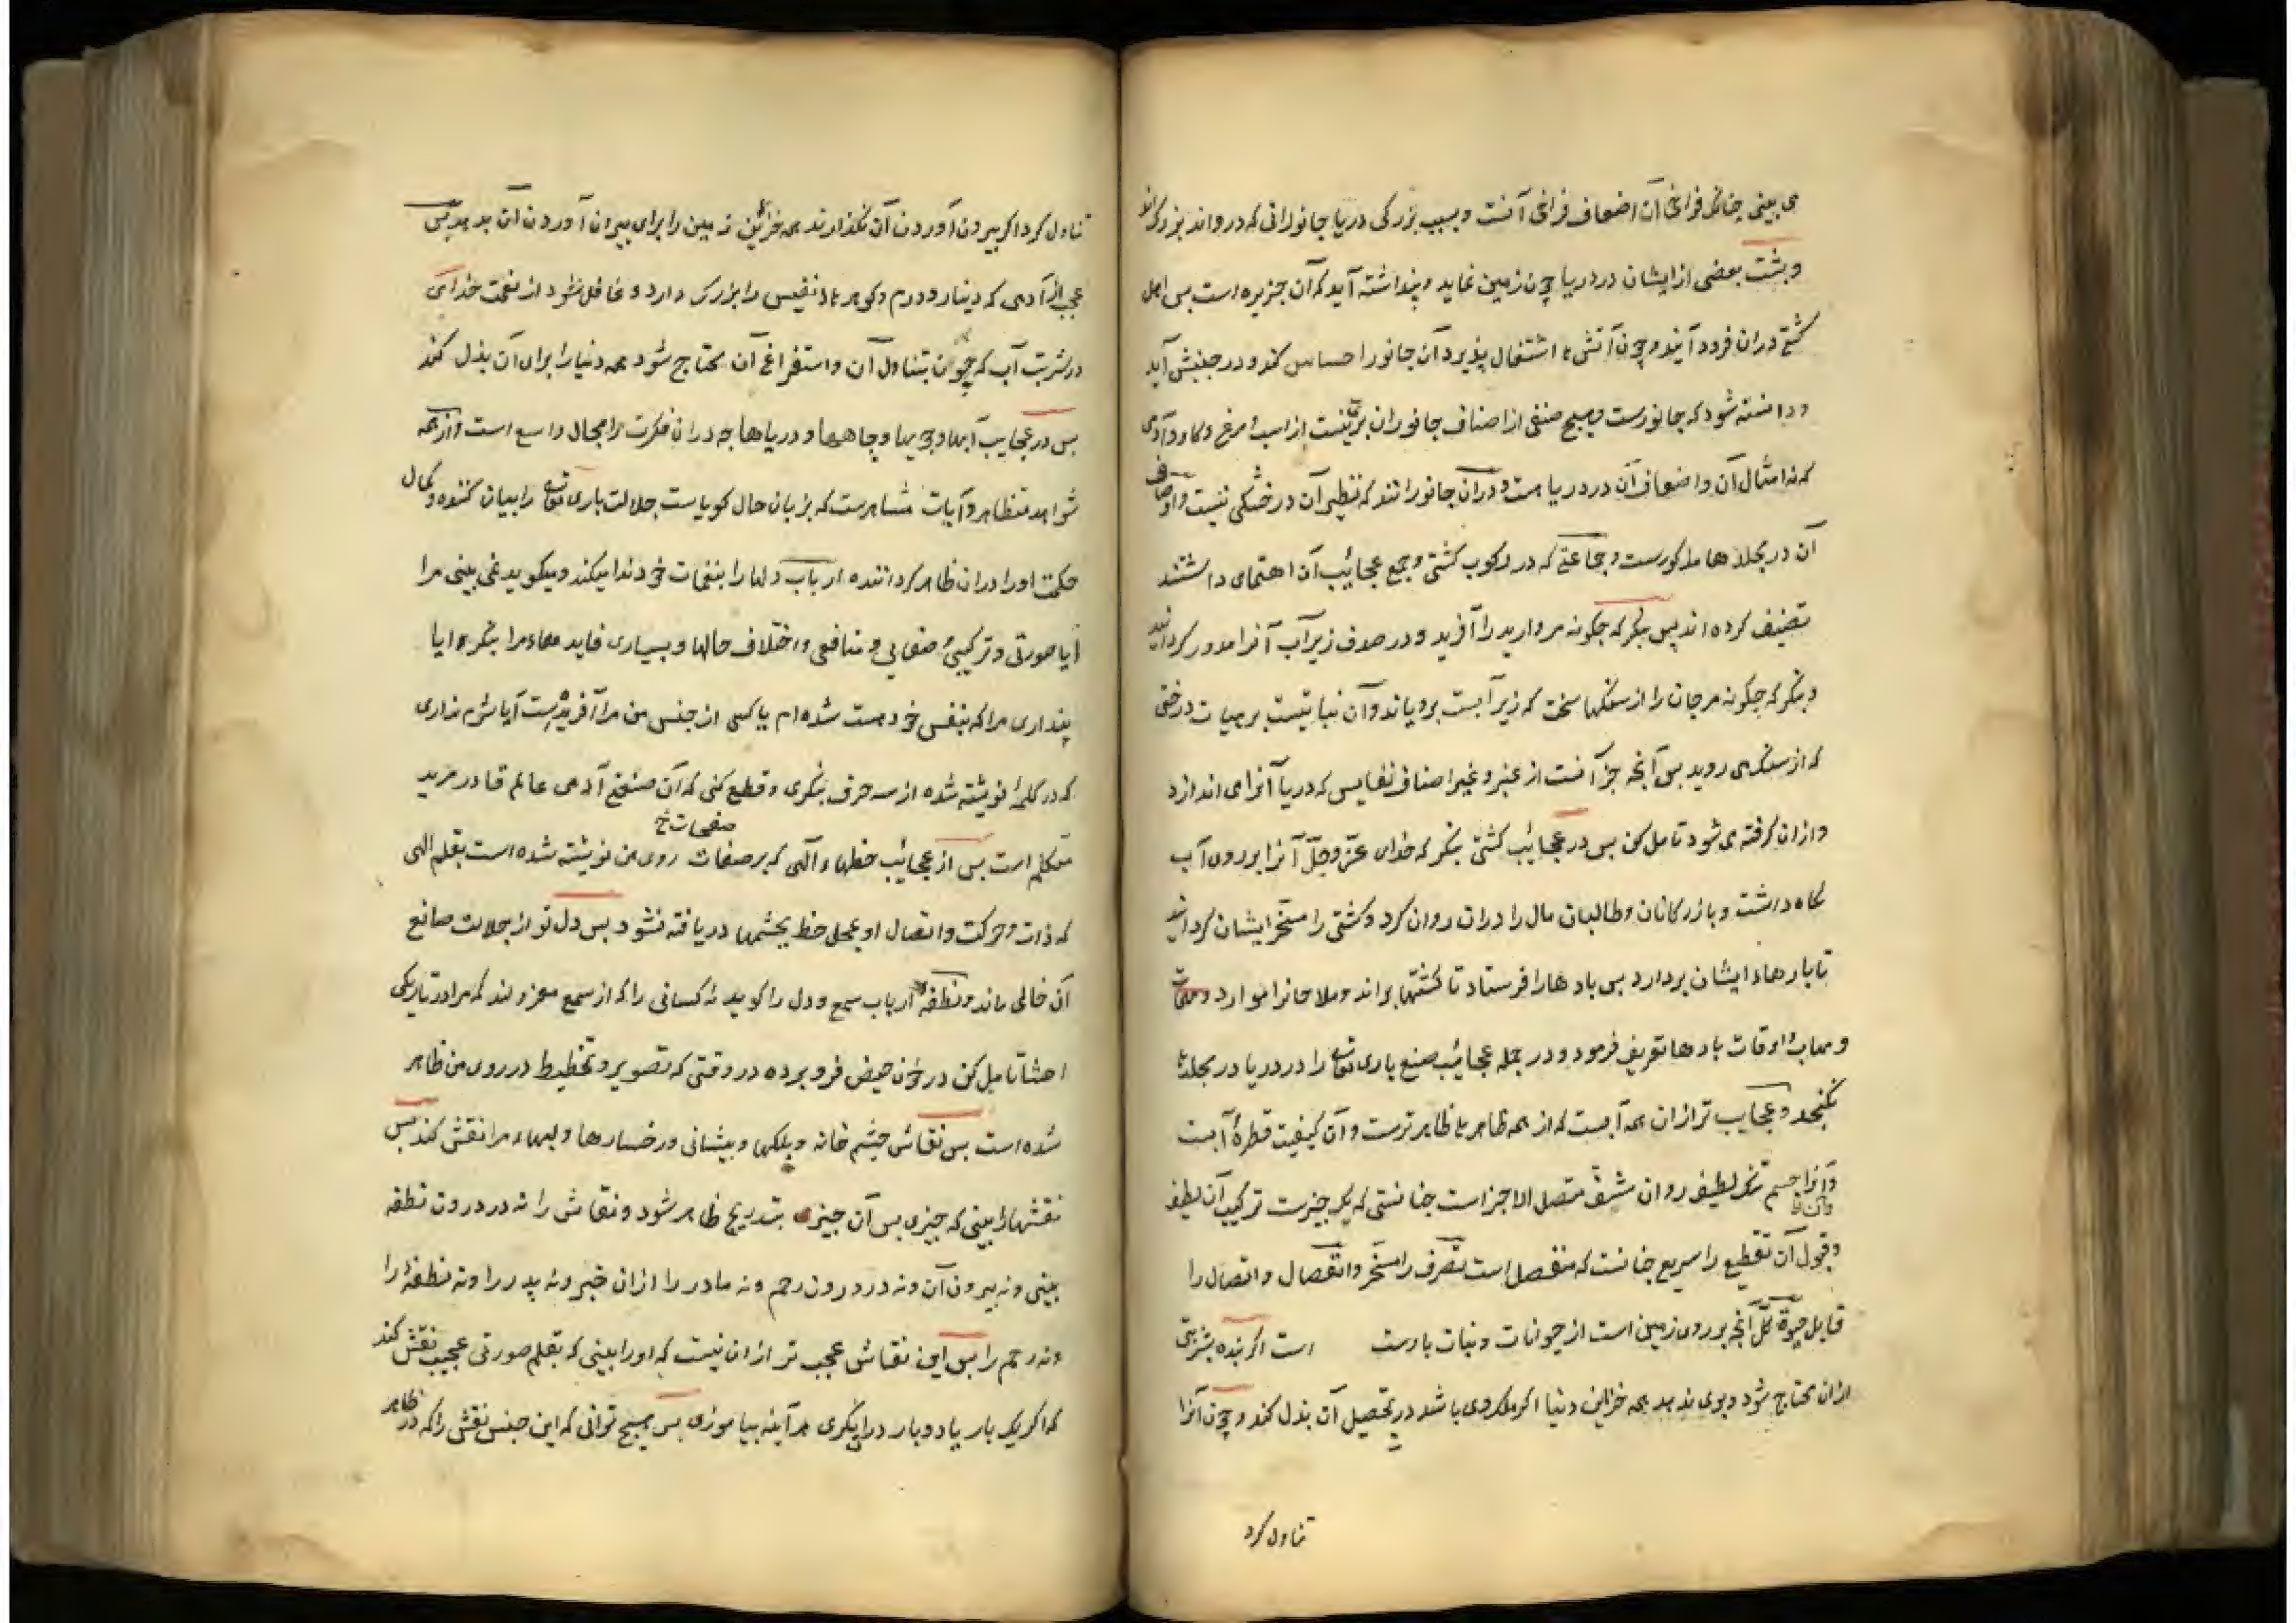 می بینی چنانکه فراخی آن اضعاف فراخی آنست و بسبب بزرگی دریا جانورانی که درو اند بزرگ اند
و پشت بعضی از ایشان در دریا چون زمین نماید و پنداشته آید که آن جزیره است پس اهل
کشتی دران فرود آیند و چون آتش ها اشتعال پذیرد آن جانور احساس کند و در جنبش آید
و دانسته شود که جانورست و هیچ صنفی از اصناف جانوران بری نیست از اسب و مرغ و گاو و آدمی
که نه امثال آن و اضعاف آن در دریا هست و دران جانورانند که نظیر آن در خشکی نیست و اوصاف
آن در مجلدها مذکورست و جماعتی که در رکوب کشتی و جمع عجائب آن اهتمامی داشتند
تصنیف کرده اند پس بنگر که چگونه مروارید را آفرید و در صدف زیر آب آنرا مدور گردانید
و بنگر که چگونه مرجان را از سنگهای سخت که زیر آبست برویاند و آن نباتیست بر هیات درختی
که از سنگ می روید پس آنچه جز آنست از عنبر و غیر اصناف نفایس که دریا آنرا می اندازد
و ازان گرفته می شود تامل کن پس در عجائب کشتی بنگر که خدای عزّ و جلّ آنرا بر روی آب
نگاه داشت و بازرگانان و طالبان مال را دران روان کرد و کشتی را مسخر ایشان گردانید
تا بارهاء ایشان بردارد پس بادها را فرستاد تا کشتیها براند و ملاحانرا موارد
و مهاب و اوقات بادها تعریف فرمود و در جمله عجائب صنع باری تع را در دریا در مجلدها
نگنجد و عجایب تر ازان همه آبست که از همه ظاهرها ظاهر ترست و آن کیفیت قطرهٔ آبست
و آنرا جسم تنک لطیف روان مشف متصل الاجزاست چنانستی که یک چیزست ترکیب آن لطیف
و قبول آن تقطیع را سریع چنانست که منفصل است تصرف را مسخر و انفصال و اتصال را
قابل حیوة کل آنچه بر روی زمین است از حیوانات و نبات بدوست است اگر بنده بشربتی
ازان محتاج شود و بوی ندهد همه خزاین دنیا اگر ملک وی باشد در تحصیل آن بذل کند و چون آنرا
تناول کرد
تناول کرد اگر بیرون آوردن آن نگذارند همه خزائن زمین را برای بیرون آوردن آن بدهد پس
عجب از آدمی که دینار و درم و گوهرهاء نفیس را بزرگ دارد و غافل شود از نعمت خدای
در شربت آب که چون بتناول آن و استفراغ آن محتاج شود همه دنیا را برای آن بذل کند
پس در عجایب آبها و جویها و چاهها و دریاها چه دران فکرت را مجال واسع است و از همه
شواهد متظاهر و آیات متناصرست که بزبان حال گویاست جلالت باری تع را بیان کننده و کمال
حکمت او را دران ظاهر گرداننده ارباب دلها را بنغمات خود ندا میکند و میگوید نمی بینی مرا
آیا صورتی و ترکیبی و صفاتی و منافعی و اختلاف حالها و بسیاری فایدهاء مرا بنگر و ایا
پنداری مرا که بنفس خود هست شده ام یا کسی از جنس من مرا آفریده است آیا شرم نداری
که در کلمهٔ نوشته شده از سه حرف بنگری و قطع کنی که آن صنع آدمی عالم قادر مرید
صفحات خ
متکلم است پس از عجائب خطهاء الهی که بر صفات روی من نوشته شده است بقلم الهی
که ذات و حرکت و اتصال او بمحل خط بچشمها دریافته نشود پس دل تو از جلالت صانع
آن خالی ماند و نطفه ارباب سمع و دل را گوید نه کسانی را که از سمع معزولند که مرا در تاریکی
احشا تامل کن در خون حیض فرو برده در وقتی که تصویر و تخطیط در روی من ظاهر
شده است پس نقاش چشم خانه و پلکها و پیشانی و رخسارها و لبهاء مرا نقش کند پس
نقشها را بینی که چیزی پس آن چیزی بتدریج ظاهر شود و نقاش را نه در درون نطفه
بینی و نه بیرون آن و نه در درون رحم و نه مادر را ازان خبر و نه پدر را و نه نطفه را
و نه رحم را پس این نقاش عجب تر ازان نیست که او را بینی که بقلم صورتی عجیب نقش کند
که اگر یک بار یا دو بار درو بنگری هر آینه بیاموزی پس هیچ توانی که این جنس نقش را که در ظاهر